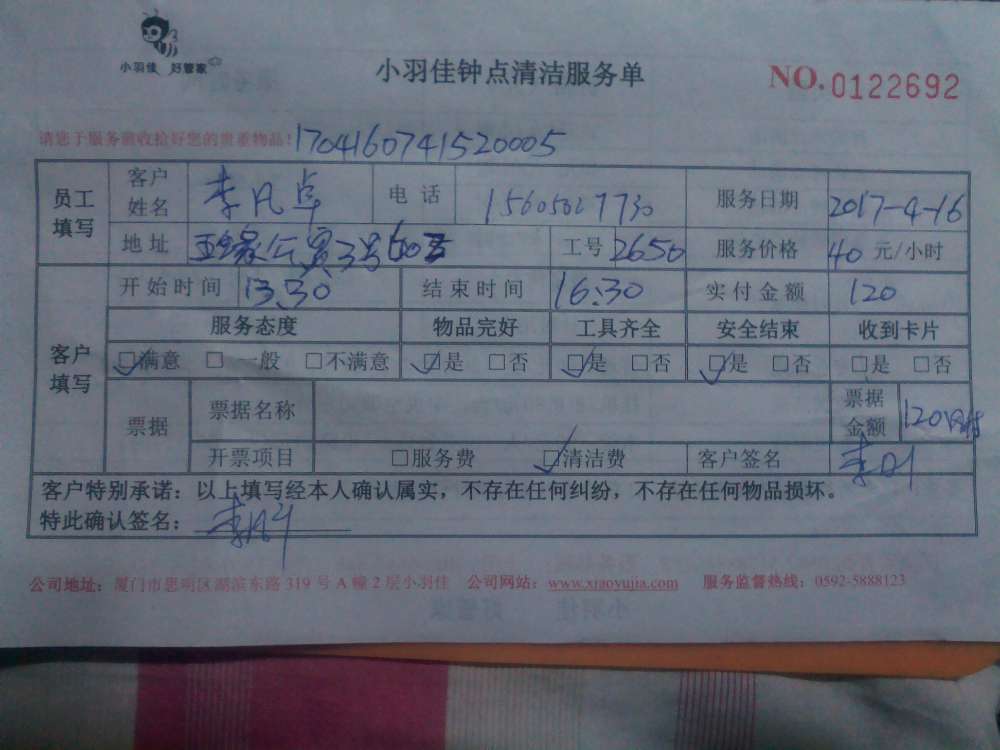 小羽佳 好管家
小羽佳钟点清洁服务单
NO.0122692
请您于服务前收拾好您的贵重物品!1704160741520005
员工填写 客户姓名 李凡卓 电话 服务日期 2017-4-16
地址 公寓3号 工号 2650 服务价格 40 元/小时
客户填写 开始时间 13.30 结束时间 16.30 实付金额 120
服务态度 物品完好 工具齐全 安全结束 收到卡片
☑满意 □一般 □不满意 ☑是 □否 ☑是 □否 ☑是 □否 □是 □否
票据 票据名称 票据金额 120
开票项目 □服务费 ☑清洁费 客户签名
客户特别承诺：以上填写经本人确认属实，不存在任何纠纷，不存在任何物品损坏。
特此确认签名：
公司地址：厦门市思明区湖滨东路 319 号 A 幢 2 层小羽佳 公司网站：www.xiaoyujia.com 服务监督热线：0592-5888123